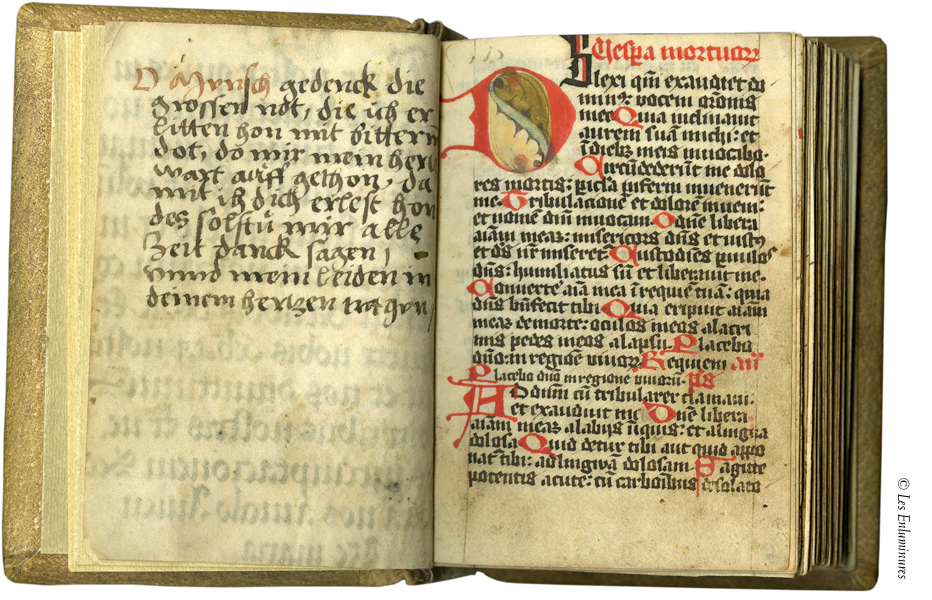 O Mensch gedenck die
grossen not, die ich er
litten hon mit bitterm
dot, do mir mein hertz
wart auff gethon, da
mit ich dich erlest hon
des solstu mir alle
Zeit danck sagen,
vnnd mein leiden in
deinem hertzen
Vespa mortuorꝝ
Dilexi qm̄ exaudiet do
minꝰ vocem orōnis
mee Quia inclinauit
aurem suā michi: et
ī diebꝫ meis inuocabo.
Circūdederūt me dolo
res mortis: picla inferni inuenerūt
me. Tribulacionē et dolorē inueni:
et nomē dn̄i inuocaui. O dn̄e libera
aīam meaꝫ: misericors dn̄s et iustꝰ
et dꝰ nr̄ miseret. Custodiēs paruulos
dn̄s: humiliatus sū et liberauit me.
Conuerte aīa mea ī requiē tuā: quia
dn̄s bn̄fecit tibi Quia eripuit aīam
meaꝫ de morte: oculos meos a lacri
mis pedes meos a lapsu. Placebo
dn̄o: in regione viuorꝝ Requiem an̄
Placebo dn̄o in regione viuorū. ps
Ad dn̄m cū tribularer clamaui:
et exaudiuit me Dn̄e libera
aīam meaꝫ a labijs īiquis: et a lingua
dolosa Quid detur tibi aut quid appo
nat̄ tibi: ad linguā dolosam. Sagitte
potentis acute: cū carbōibus desolato
© Les Enluminures